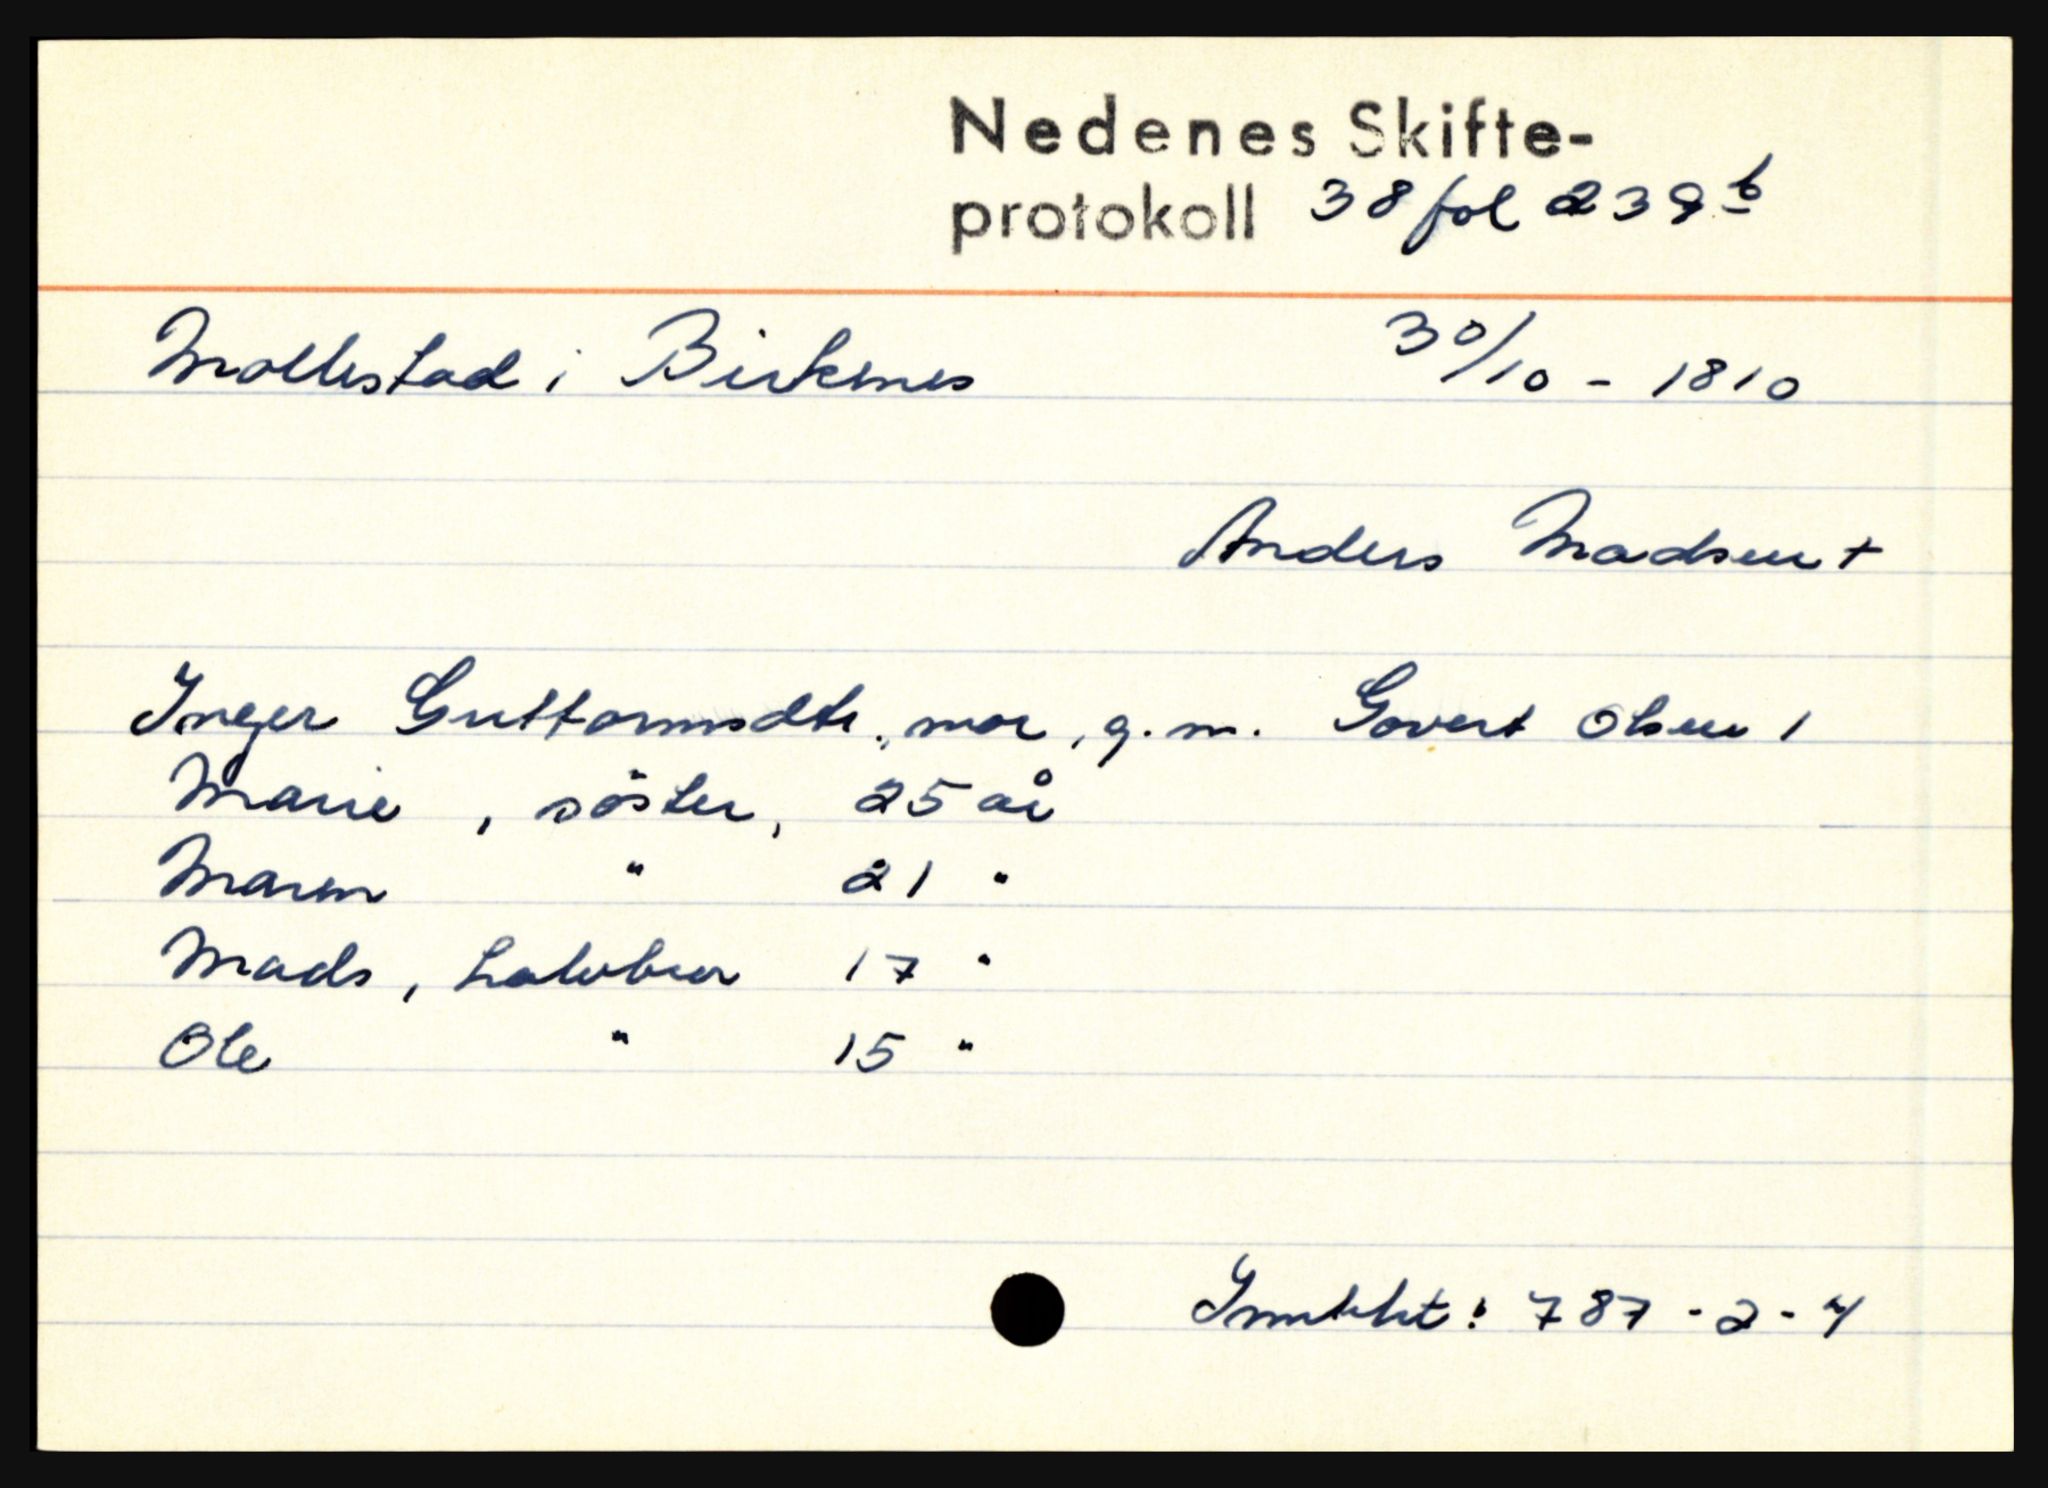 Nedenes Skifte-
protokoll 38 fol 239 b
Mollestad i Birkenes 30/10 - 1810
Anders Madsen +
Inger Guttormsdtr., mor, g.m. Govert Olsen 1
Marie, söster, 25 år
Maren " 21 "
Mads, halvbror 17 "
Ole " 15 "
787-2-4